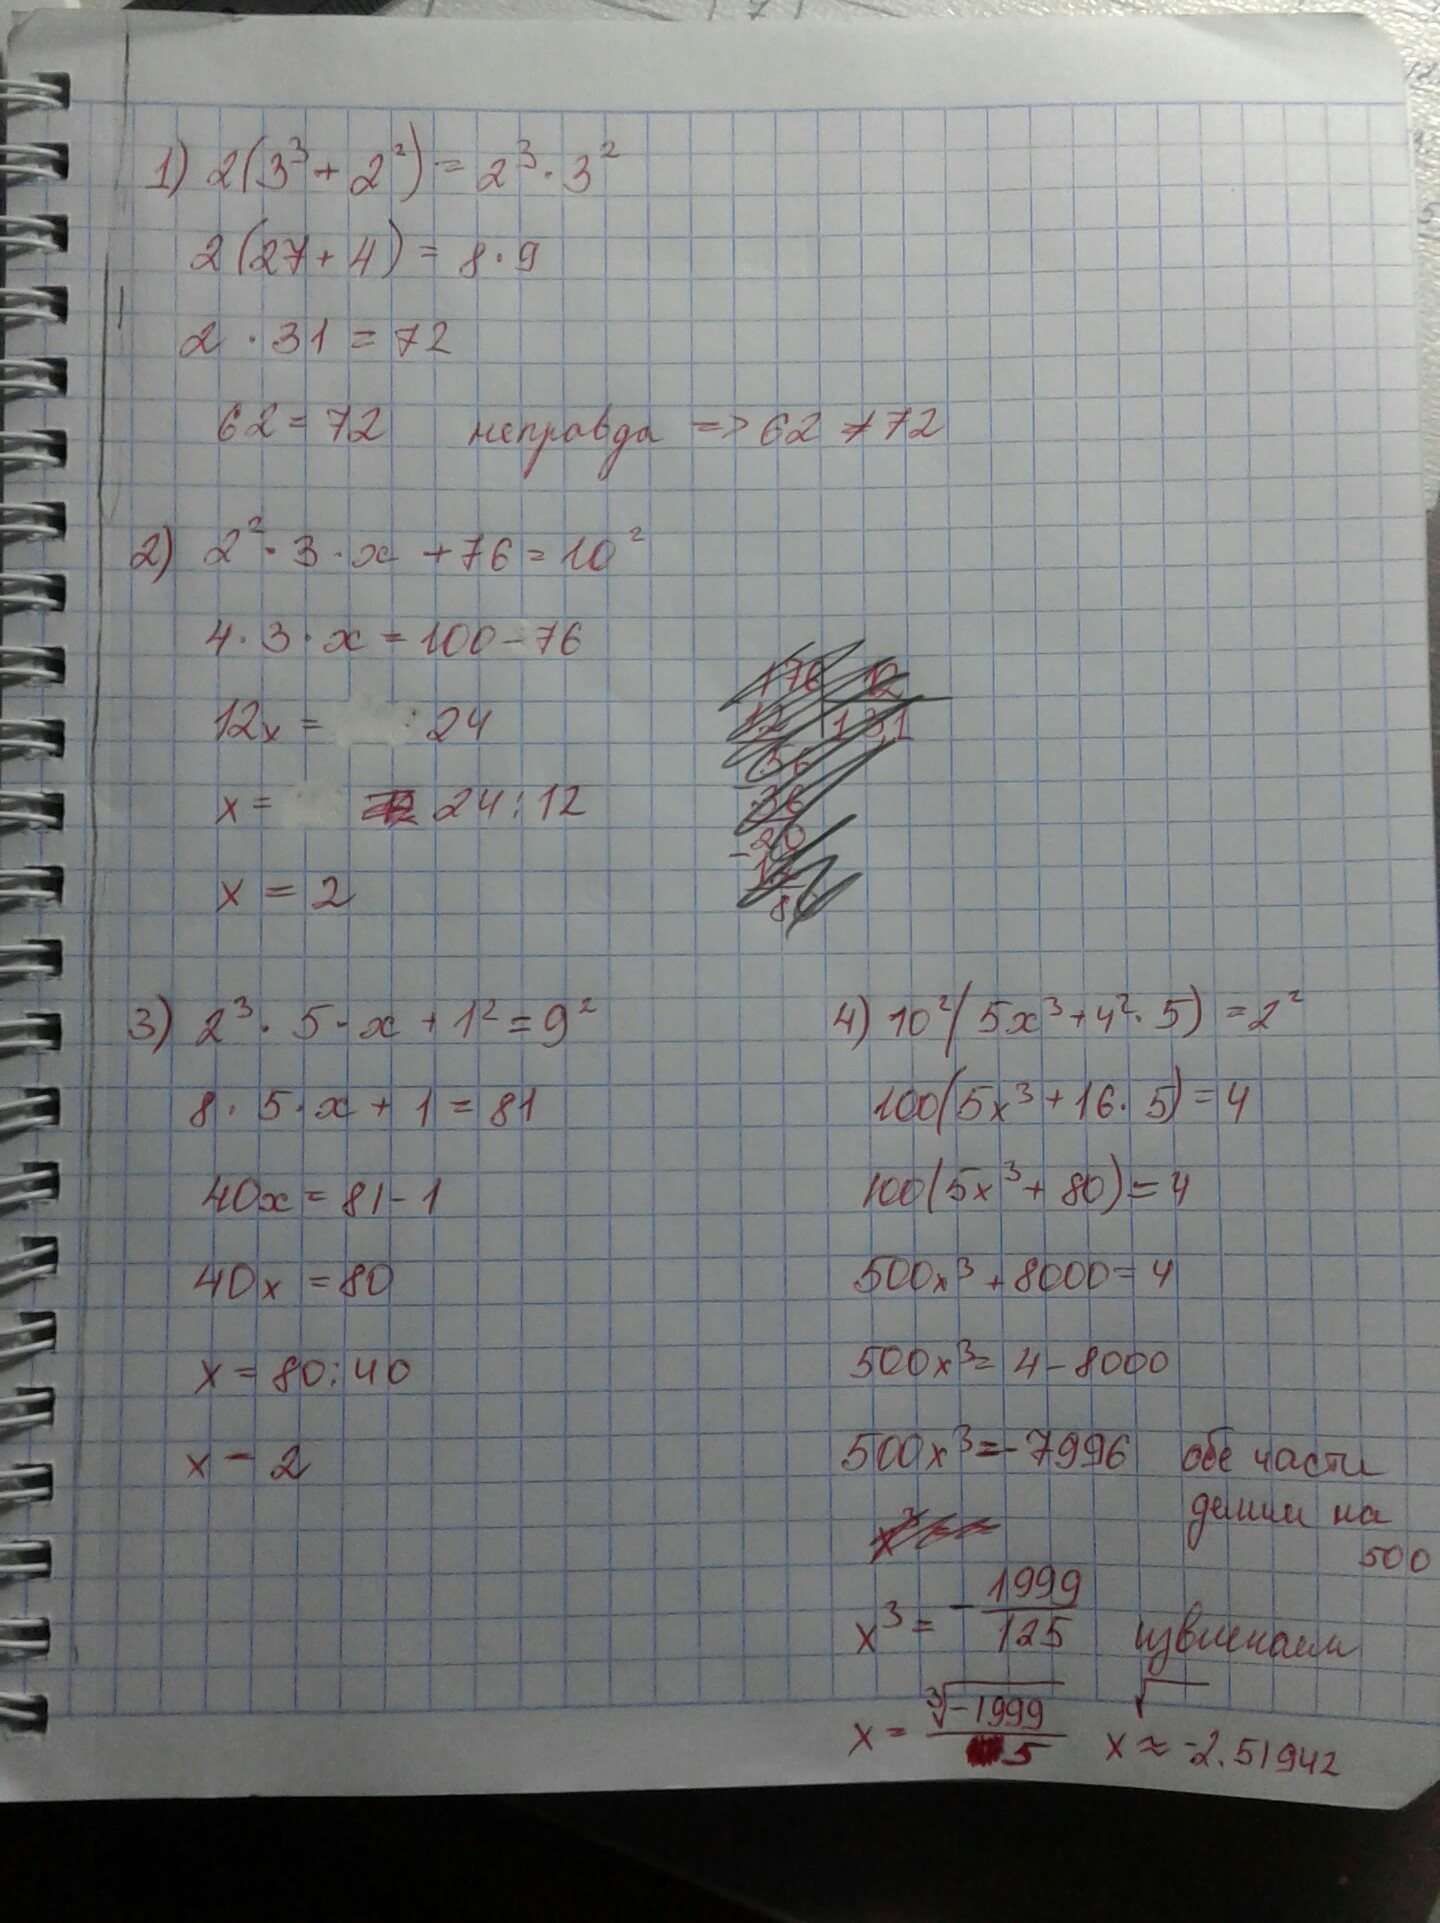 1) 2(3³ + 2²) = 2³ · 3²
2(27 + 4) = 8 · 9
2 · 31 = 72
62 = 72 неправда => 62 ≠ 72
2) 2² · 3 · x + 76 = 10²
4 · 3 · x = 100 - 76
12x = 24
x = 24 : 12
x = 2
3) 2³ · 5 · x + 1² = 9²
8 · 5 · x + 1 = 81
40x = 81 - 1
40x = 80
x = 80 : 40
x = 2
4) 10²(5x³ + 4² · 5) = 2²
100(5x³ + 16 · 5) = 4
100(5x³ + 80) = 4
500x³ + 8000 = 4
500x³ = 4 - 8000
500x³ = -7996 обе части
делим на
500
x³ = - 1999/125 извлекаем
√
x = ∛-1999/5 x ≈ -2.51942